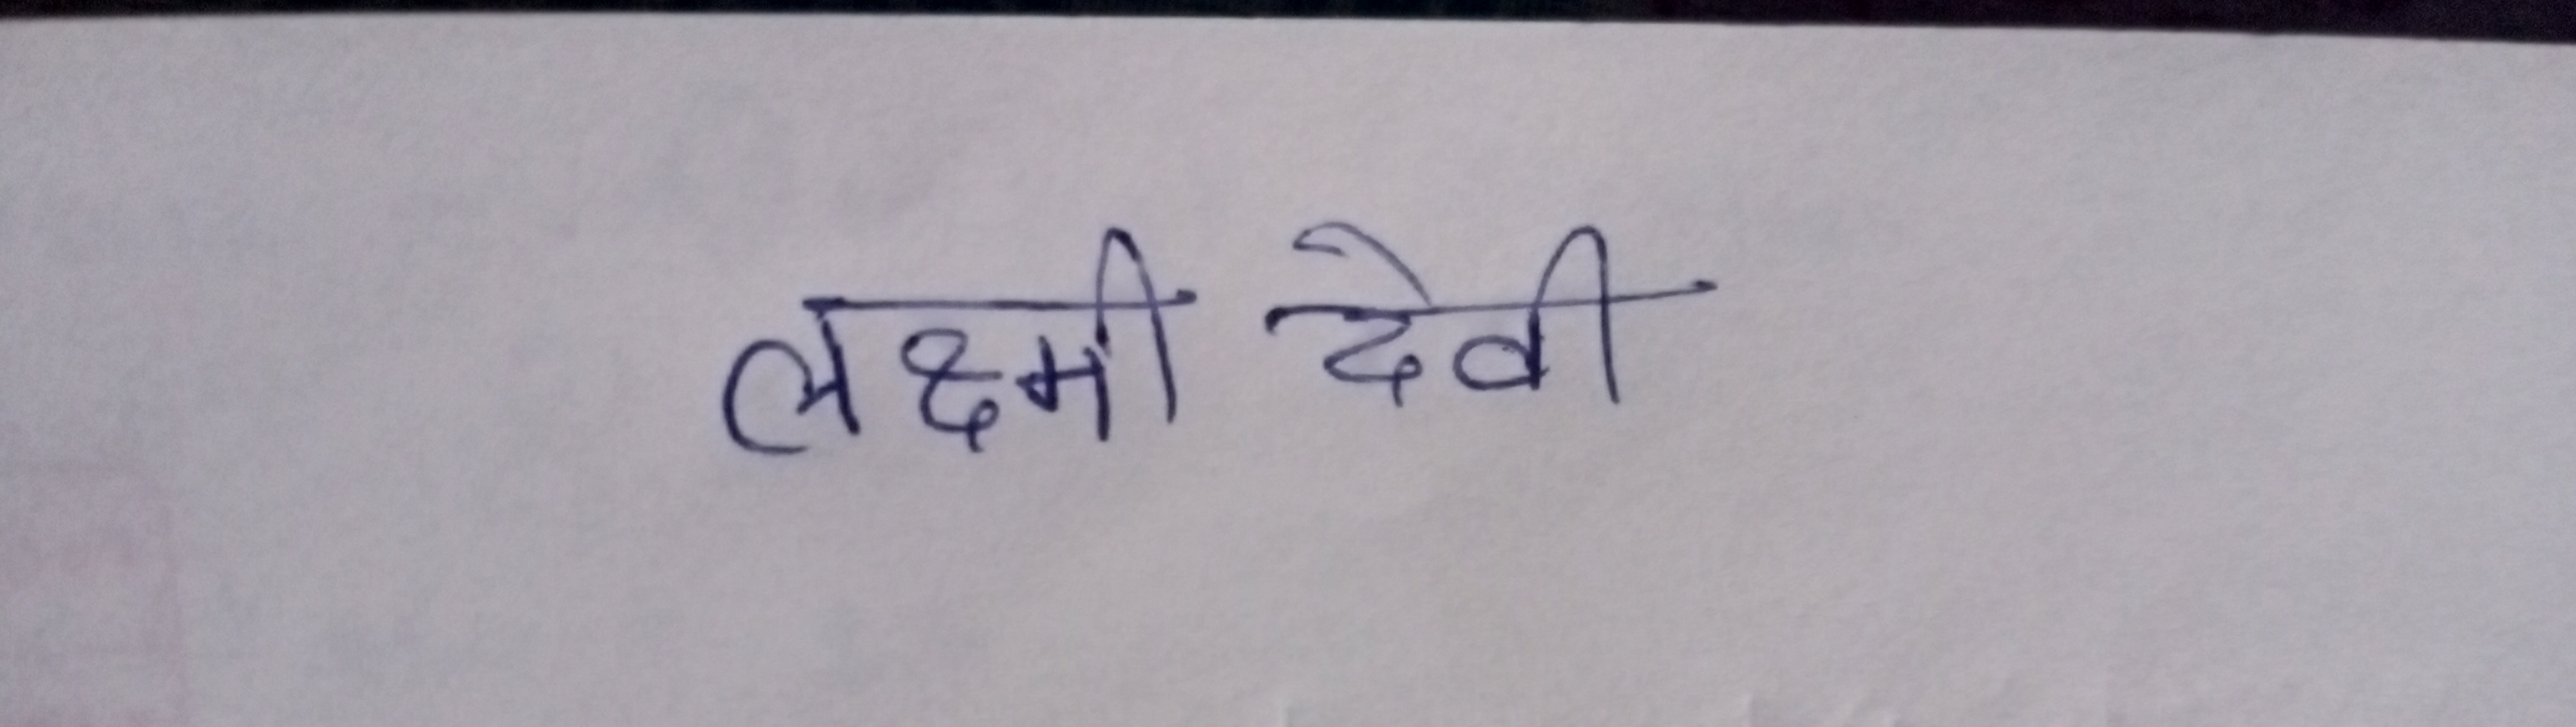 लक्ष्मी देवी